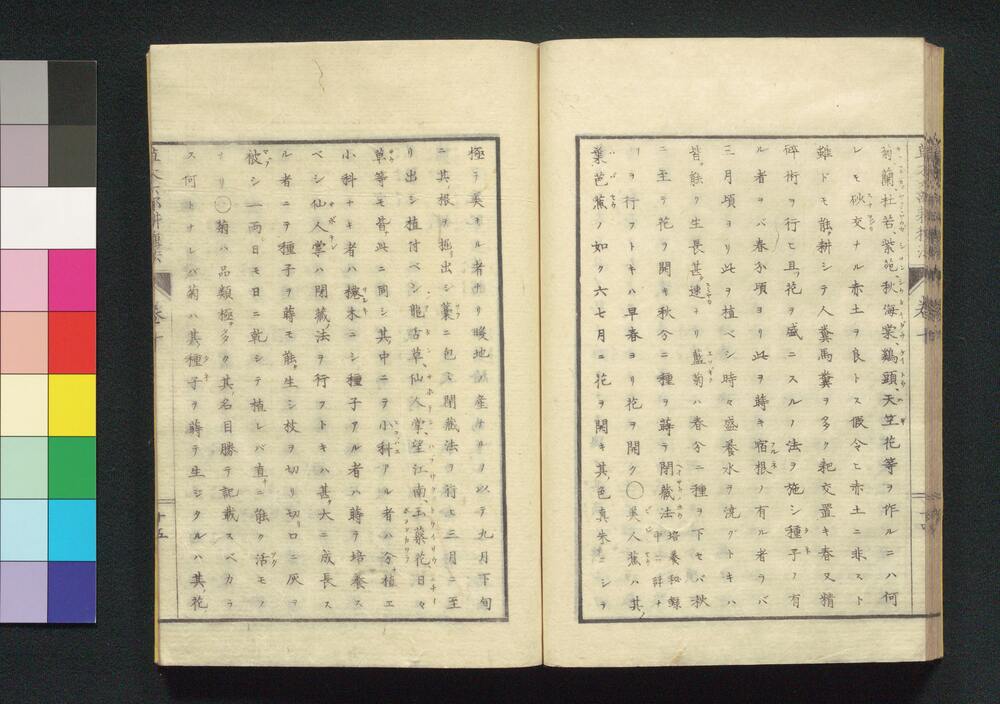 蘭、杜若、紫苑、秋海棠、鷄頭、天竺花等ヲ作ルニハ何
レモ砂交ナル赤土ヲ良トス假令ヒ赤土ニ非スト
雖ドモ能耕シテ人糞馬糞ヲ多ク耙交置キ春又精
碎術ヲ行ヒ且花ヲ盛ニスルノ法ヲ施シ種子ノ有
ル者ヲバ春分頃ヨリ此ヲ蒔キ宿根ノ有ル者ヲバ
三月頃ヨリ此ヲ植ベシ時々盛養水ヲ澆グトキハ
皆能ク生長甚速ナリ藍菊ハ春分ニ種ヲ下セバ秋
ニ至テ花ヲ開キ秋分ニ種ヲ蒔テ閉藏法培養秘録中ニ詳ナ
リヲ行フトキハ早春ヨリ花ヲ開ク〇美人蕉ハ其
葉芭蕉ノ如ク六七月ニ花ヲ開キ其色真朱ニシテ
卷十
十四
極テ美キル者ナリ暖地ノ産ナリ以テ九月下旬
ニ其根ヲ掘出シ藁ニ包ミ閉藏法ヲ行ヒ三月ニ至
リ出シ植付ベシ龍舌草、仙人掌、望江南、玉蘂花、日々
草等モ皆此ニ同シ其中ニテ小科アル者ハ分植エ
小科ナキ者ハ攙木ニシ種子アル者ハ蒔テ培養ス
ベシ仙人掌ハ閉藏法ヲ行フトキハ甚大ニ成長ス
ル者ニテ種子ヲ蒔モ能生シ枝ヲ切リ切口ニ灰ヲ
被シ一兩日モ日ニ乾シテ植レバ直ニ能ク活モノ
ナリ〇菊ハ品類極多ク其名目勝テ記載スベカラ
ス何トナレバ菊ハ其種子ヲ蒔テ生シタルハ其花
卷十
十五